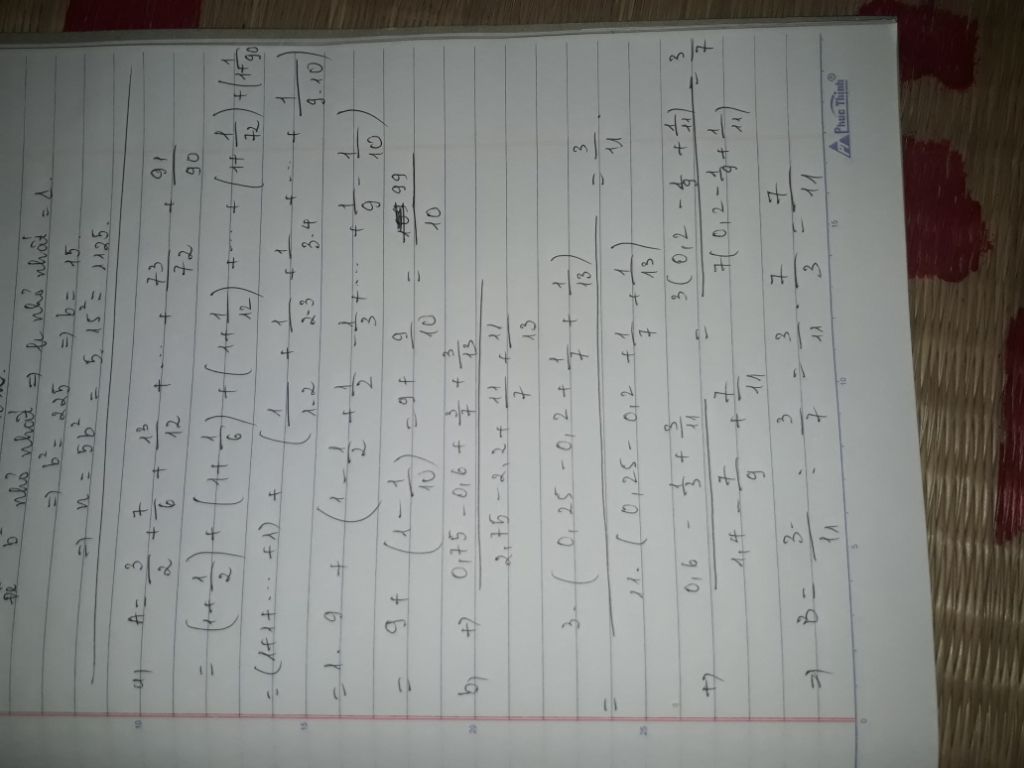 b² nhỏ nhất => ƯC nhỏ nhất = 1.
=> b² = 225 => b = 15
=> n = 5b² = 5. 15² = 1125.
a) A = 3/2 + 7/6 + 13/12 + ... + 73/72 + 91/90
= (1 + 1/2) + (1 + 1/6) + (1 + 1/12) + ... + (1 + 1/72) + (1 + 1/90
= (1+1+...+1) + (1/1.2 + 1/2.3 + 1/3.4 + ... + 1/9.10)
= 1. 9 + (1 - 1/2 + 1/2 - 1/3 + ... + 1/9 - 1/10)
= 9 + (1 - 1/10) = 9 + 9/10 = 99/10
b) +) (0,75 - 0,6 + 3/7 + 3/13) / (2,75 - 2,2 + 11/7 + 11/13)
= 3. (0,25 - 0,2 + 1/7 + 1/13) / 11. (0,25 - 0,2 + 1/7 + 1/13) = 3/11.
+) (0,6 - 3/9 + 3/11) / (1,4 - 7/9 + 7/11) = 3(0,2 - 1/9 + 1/11) / 7(0,2 - 1/9 + 1/11) = 3/7
=> B = 3/11 : 3/7 = 3/11 . 7/3 = 7/11
Phúc Thịnh®